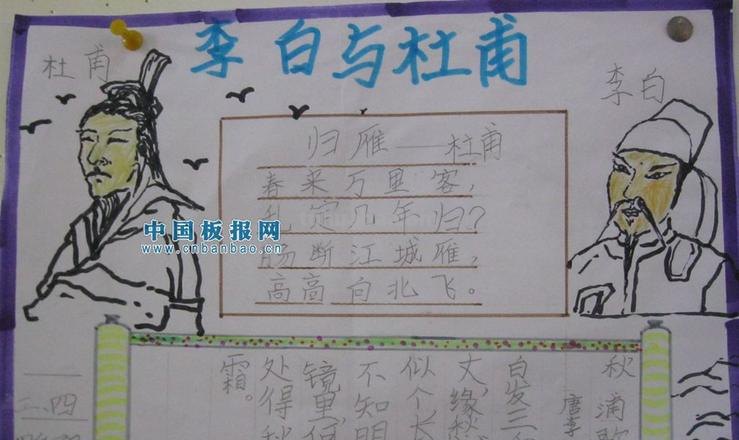 李白与杜甫
杜甫
李白
归雁——杜甫
春来万里客，
乱定几年归？
肠断江城雁，
高高向北飞。
中国板报网
www.cnbanbao.cn
秋浦歌
唐李
白发三
丈，缘愁
似个长
不知明
镜里，何
处得秋
霜。
二、四